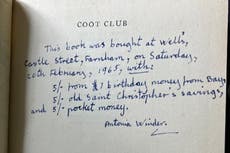 COOT CLUB
This book was bought at Wells',
Castle Street, Farnham, on Saturday,
20th February, 1965, with:
5/- from £1 birthday money from
5/- old Saint Christopher's savings,
and 5/- pocket money.
Antonia Winder.